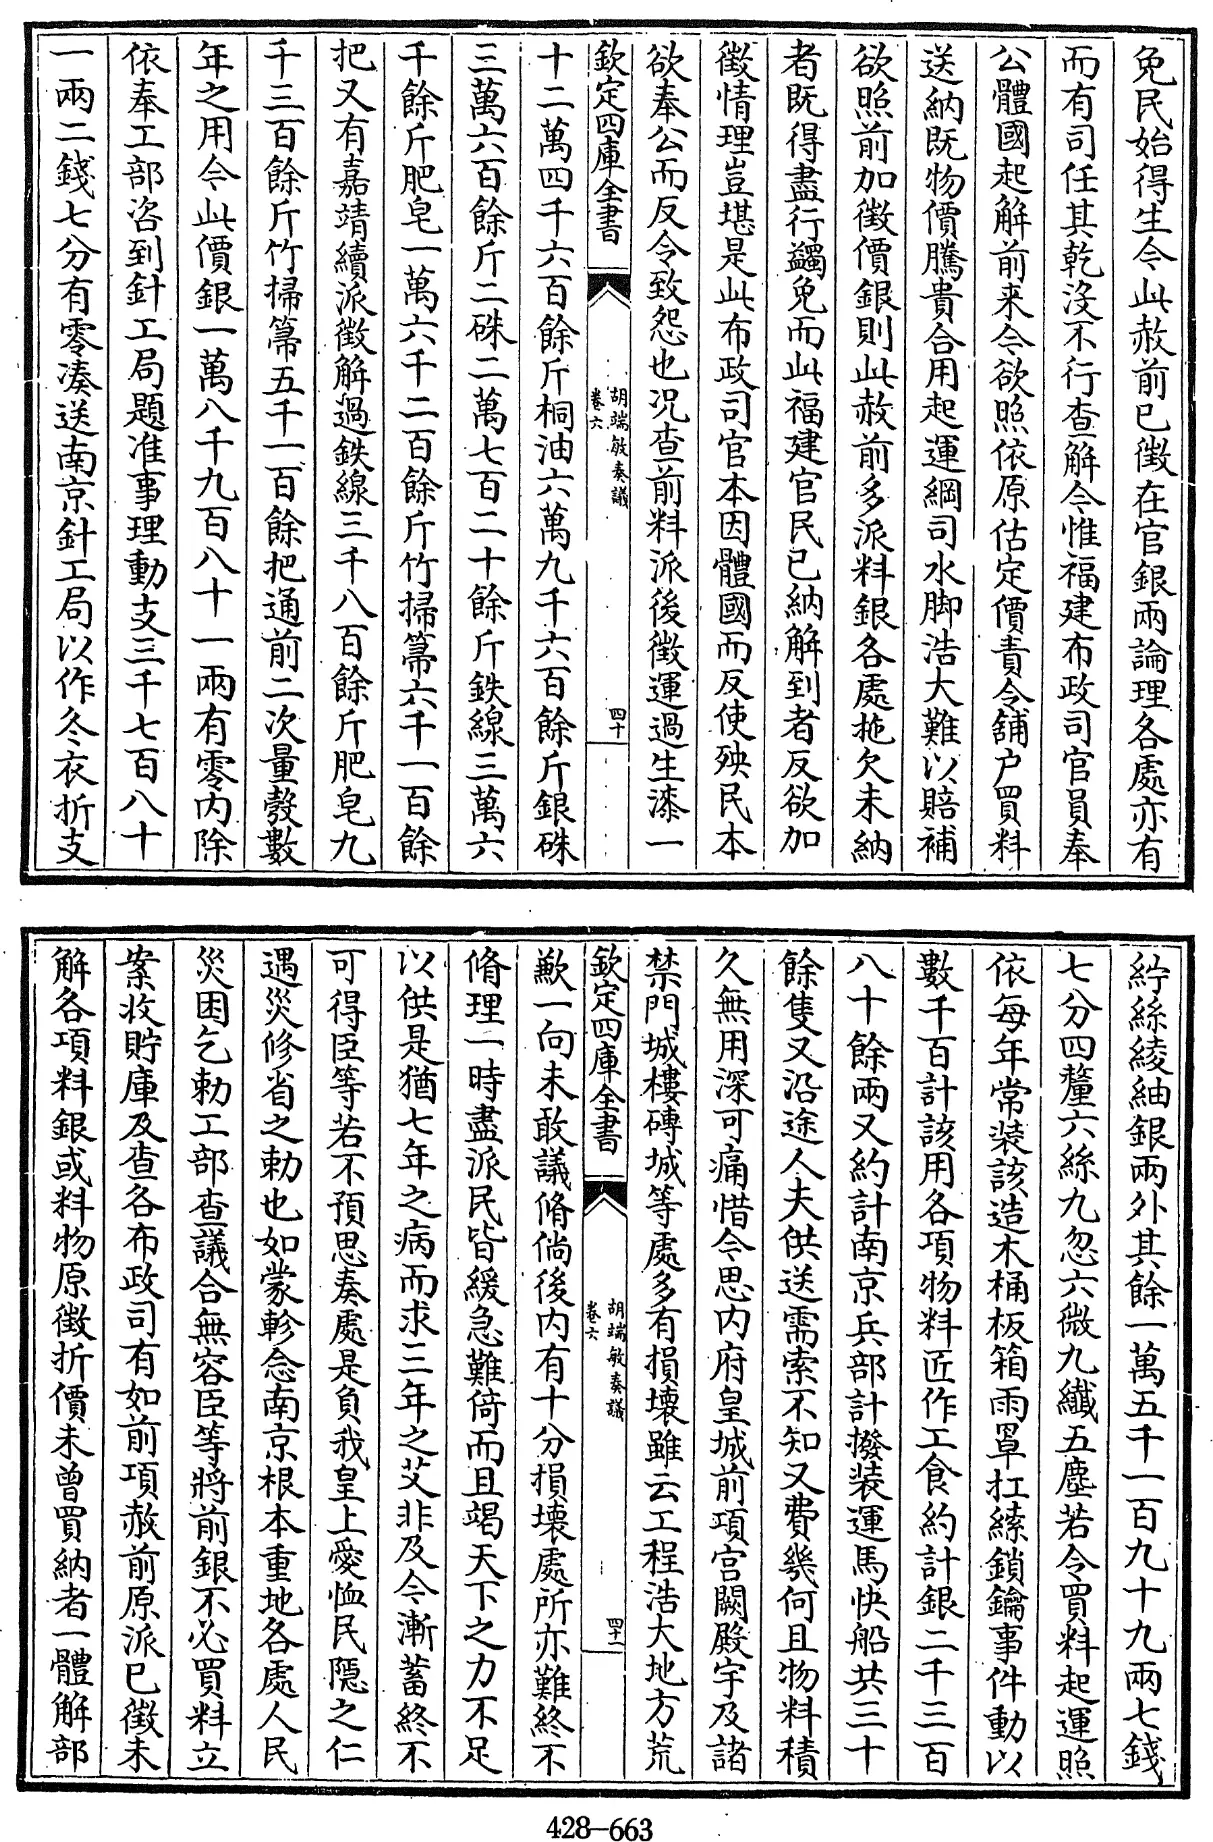 免民始得生今此赦前已徵在官銀兩論理各處亦有
而有司任其乾没不行查解今惟福建布政司官員奉
公體國起解前来今欲照依原估定價責令舖户買料
送納既物價騰貴合用起運綱司水脚浩大難以賠補
欲照前加徵價銀則此赦前多派料銀各處拖欠未納
者既得盡行蠲免而此福建官民已納解到者反欲加
徵情理豈堪是此布政司官本因體國而反使殃民本
欲奉公而反令致怨也况查前料派後徵運過生漆一
欽定四庫全書
胡端敏奏議
卷六
四十
十二萬四千六百餘斤桐油六萬九千六百餘斤銀硃
三萬六百餘斤二硃二萬七百二十餘斤鉄線三萬六
千餘斤肥皂一萬六千二百餘斤竹掃箒六千一百餘
把又有嘉靖續派徵解過鉄線三千八百餘斤肥皂九
千三百餘斤竹掃箒五千一百餘把通前二次量彀數
年之用今此價銀一萬八千九百八十一兩有零内除
依奉工部咨到針工局題准事理動支三千七百八十
一兩二錢七分有零湊送南京針工局以作冬衣折支
紵絲綾紬銀兩外其餘一萬五千一百九十九兩七錢
七分四釐六絲九忽六微九纖五塵若令買料起運照
依每年常裝該造木桶板箱雨罩扛縤鎖鑰事件動以
數千百計該用各項物料匠作工食約計銀二千三百
八十餘兩又約計南京兵部計撥裝運馬快船共三十
餘隻又沿途人夫供送需索不知又費幾何且物料積
久無用深可痛惜今思内府皇城前項宫闕殿宇及諸
禁門城樓磚城等處多有損壞雖云工程浩大地方荒
欽定四庫全書
胡端敏奏議
卷六
四十一
歉一向未敢議脩倘後内有十分損壞處所亦難終不
脩理一時盡派民皆緩急難倚而且竭天下之力不足
以供是猶七年之病而求三年之艾非及今漸蓄終不
可得臣等若不預思奏處是負我皇上愛恤民隱之仁
遇災修省之勅也如蒙軫念南京根本重地各處人民
災困乞勅工部查議合無容臣等將前銀不必買料立
案收貯庫及查各布政司有如前項赦前原派已徵未
解各項料銀或料物原徵折價未曾買納者一體解部
428-663